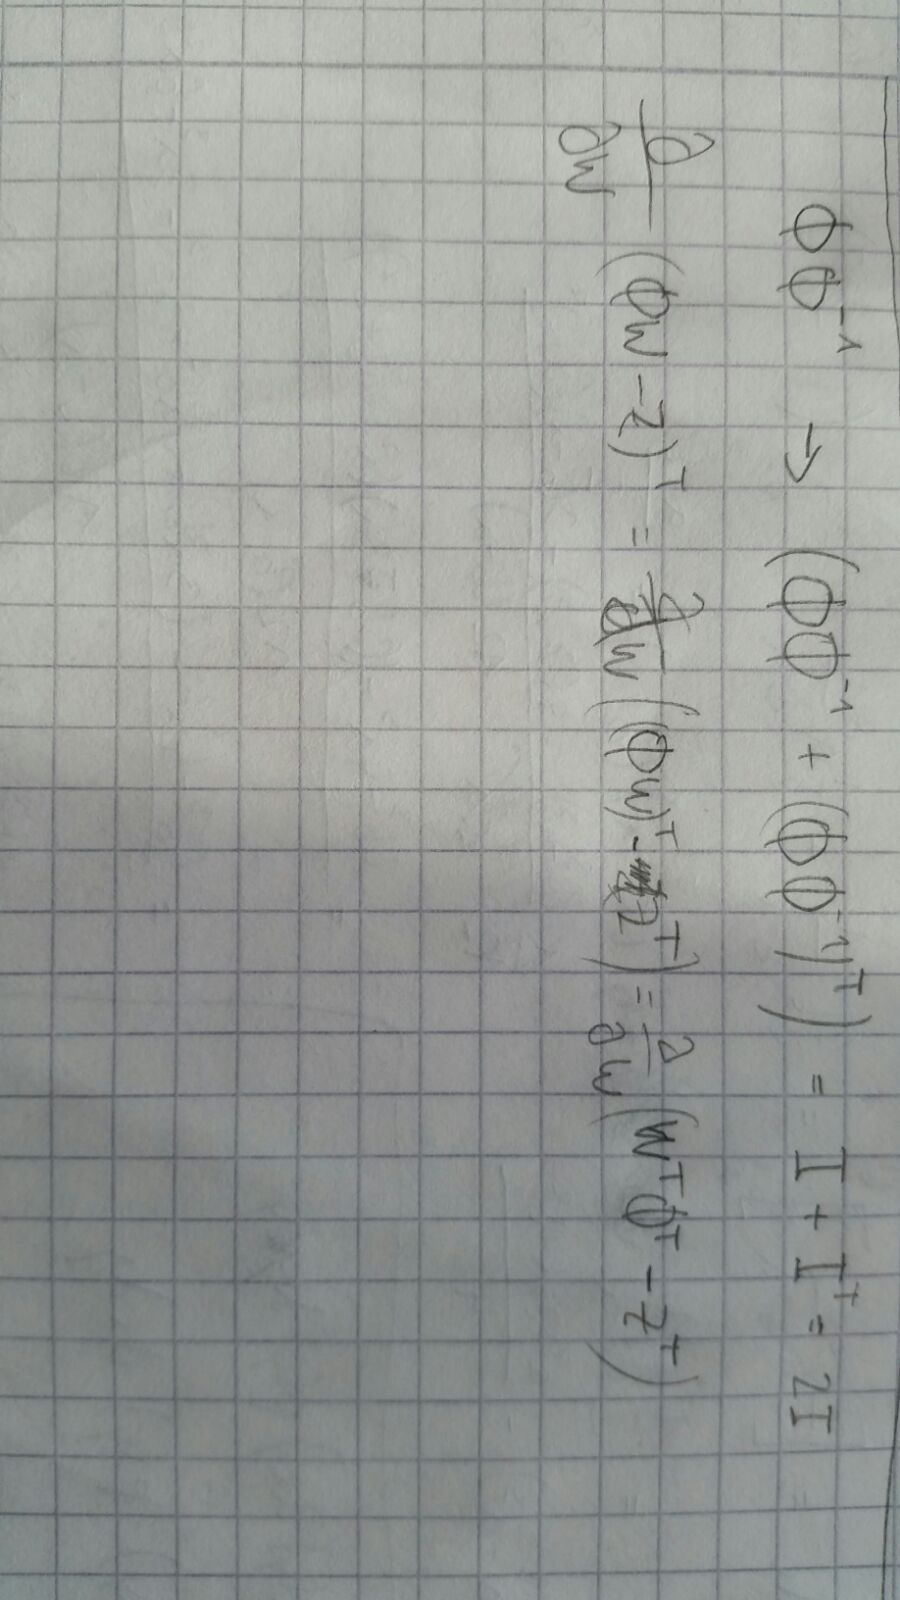 ΦΦ⁻¹ → (ΦΦ⁻¹ + (ΦΦ⁻¹)ᵀ) = I + Iᵀ = 2I
∂/∂w (Φw - z)ᵀ = ∂/∂w ((Φw)ᵀ - zᵀ) = ∂/∂w (wᵀΦᵀ - zᵀ)